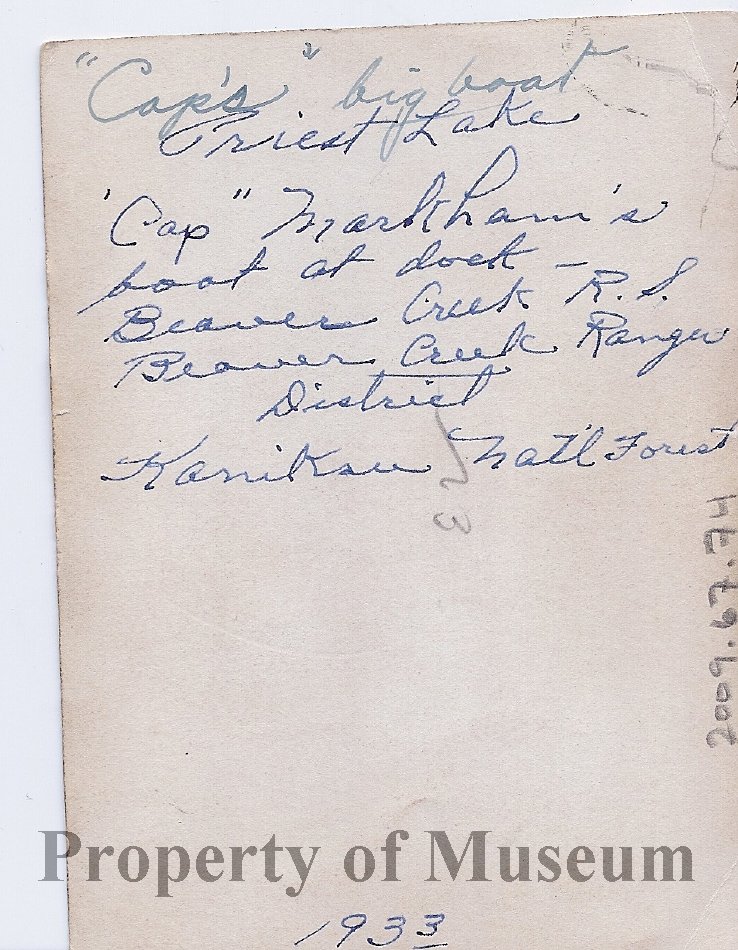 "Cap's" big boat
Priest Lake
'Cap" Markham's
boat at dock -
Beaver Creek R.S.
Beaver Creek Ranger
District
Kaniksu Nat'l Forest
2009.67.74
Property of Museum
1933